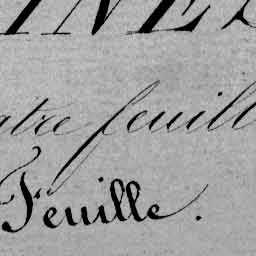 INES
atre feuill
Feuille.